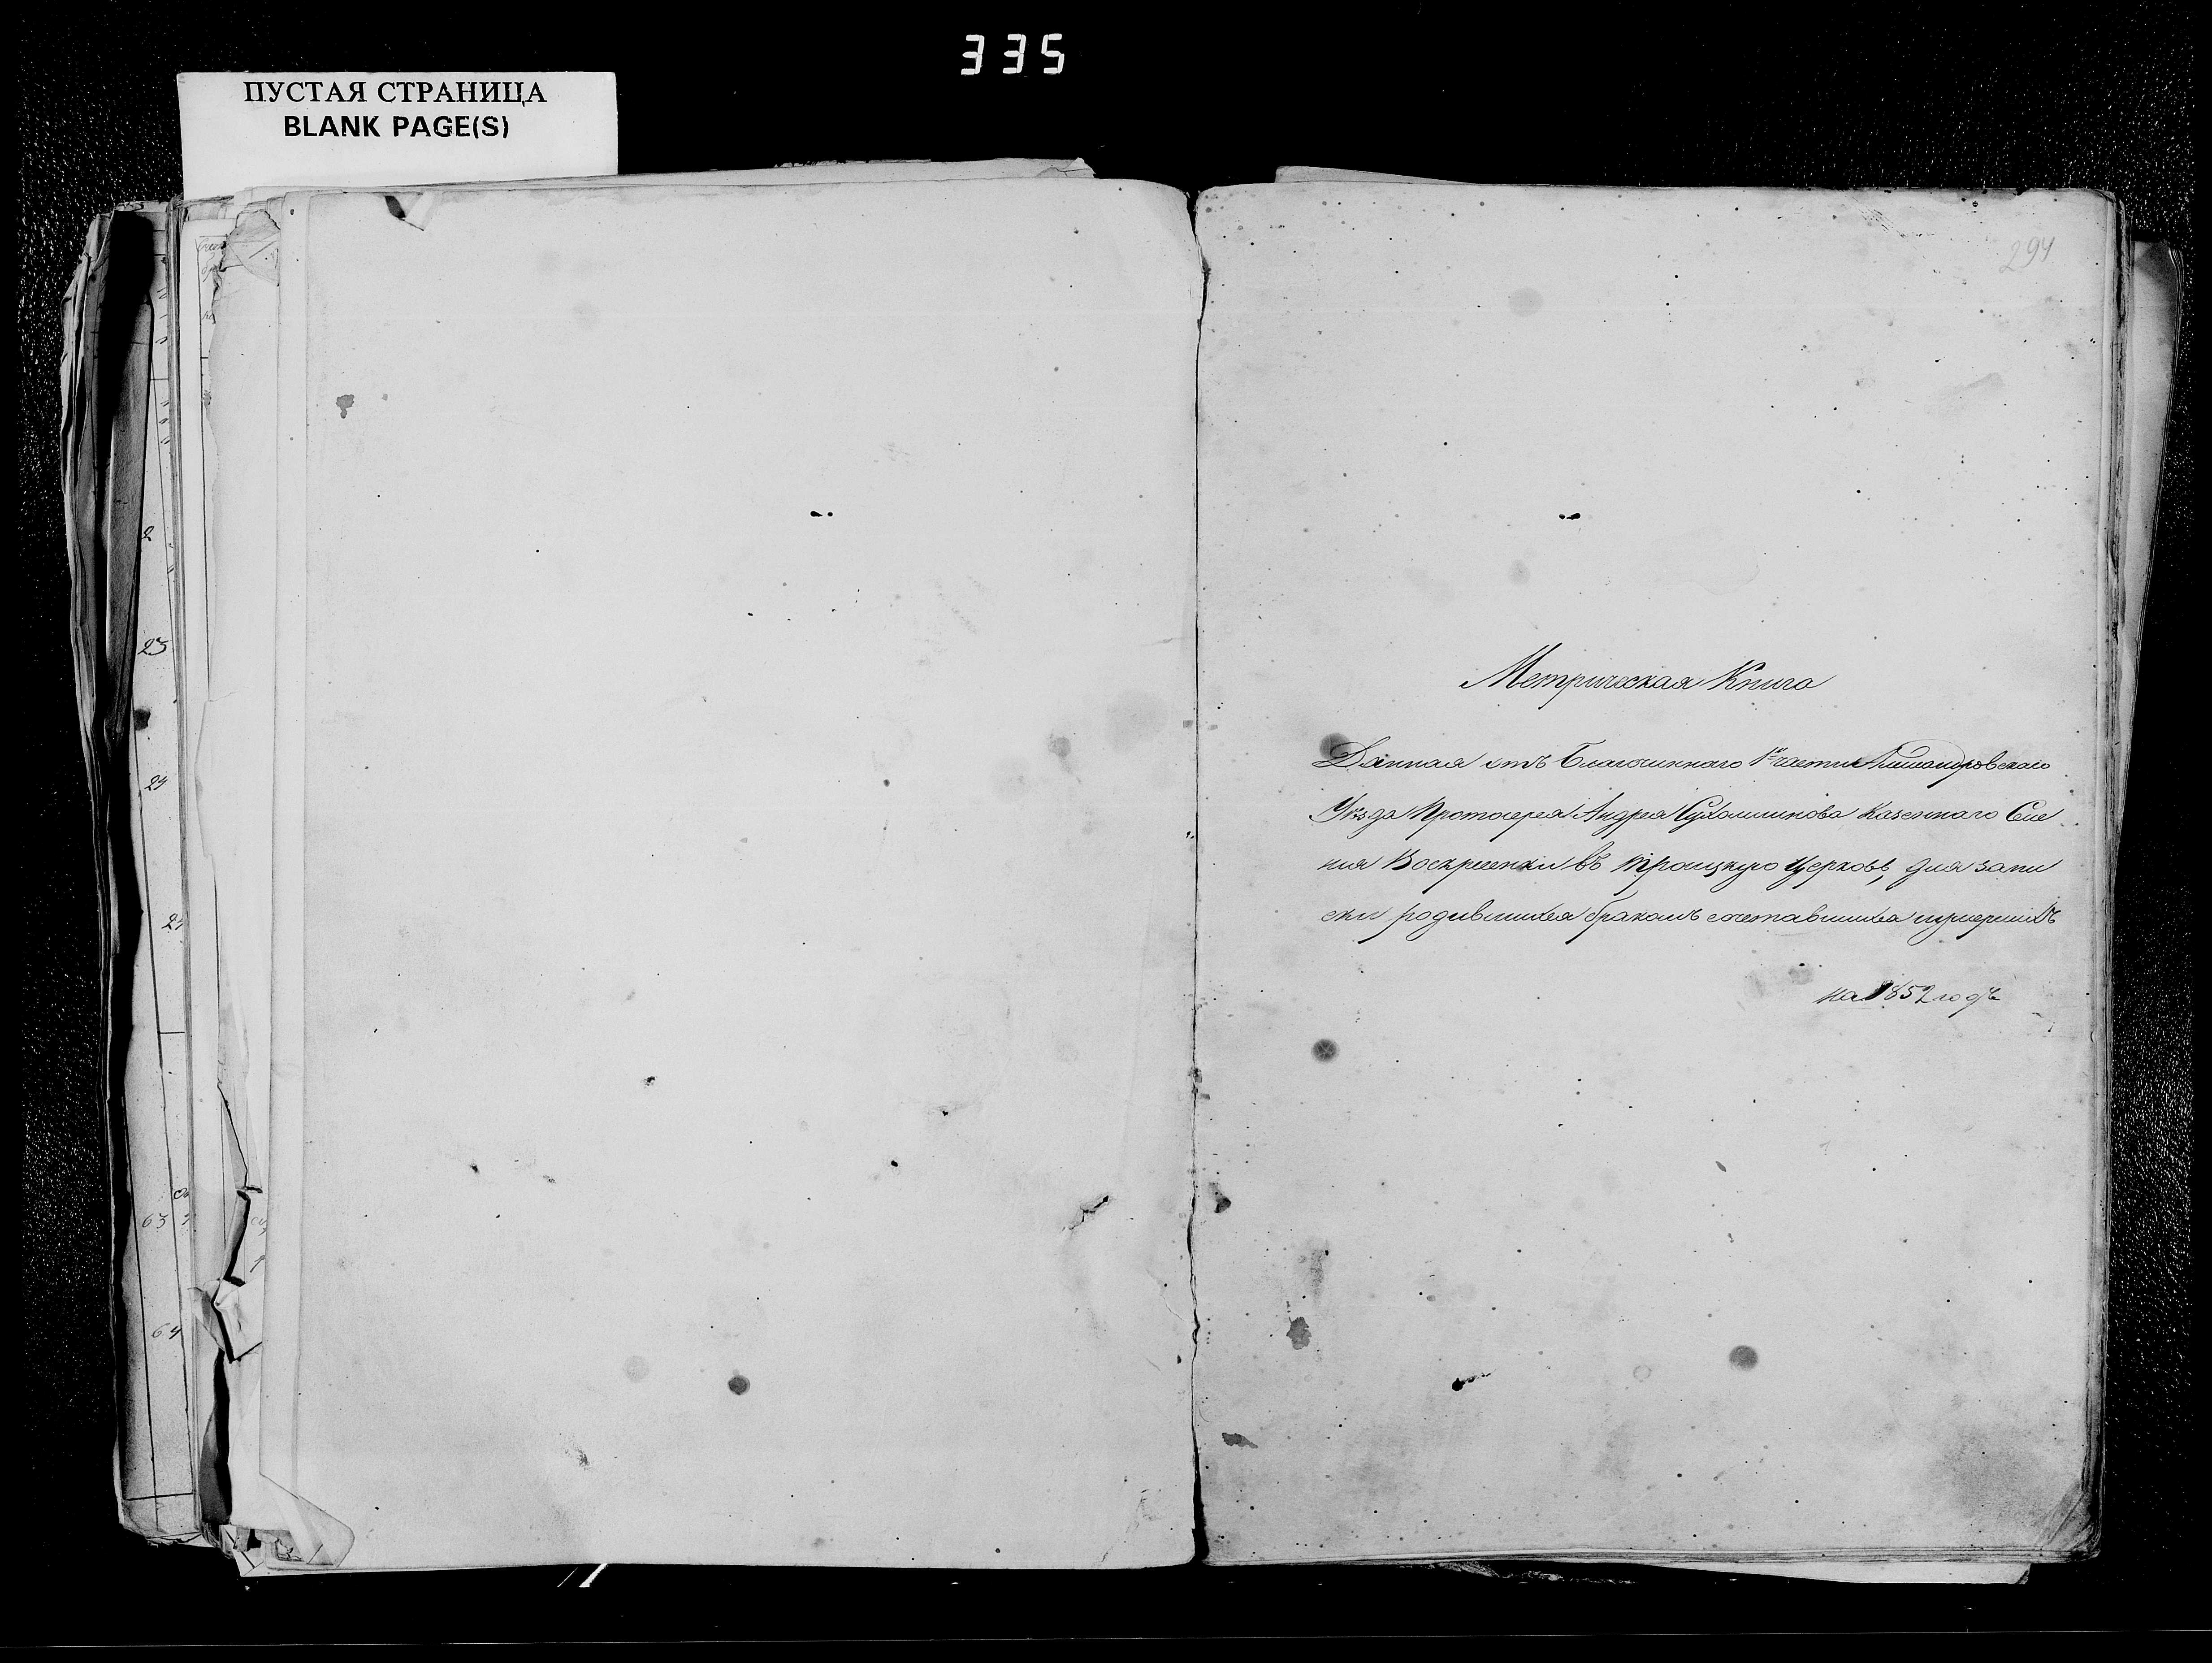 335
ПУСТАЯ СТРАНИЦА
BLANK PAGE(S)
294
Метрическая Книга
Данная отъ Благочиннаго 1й части Александровскаго
Уѣзда Протоіерея Андрея Сухомлинова Казеннаго Селе
нія Воскресенки въ Троицкую Церковь, для запи
ски родившихся бракомъ сочетавшихся и умершихъ
на 1852 годъ
2
23
24
63
64